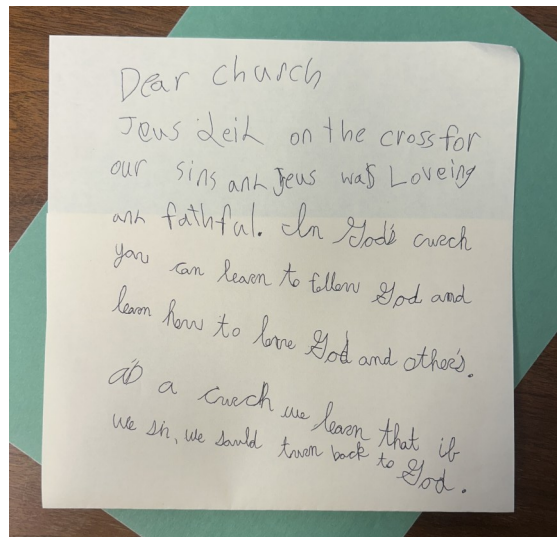 Dear church
Jeus deid on the cross for
our sins and Jeus was Loveing
and faithful. In God's cuech
you can learn to follow God and
learn how to love God and other's.
as a cuech we learn that if
we sn, we sould turn back to
God.